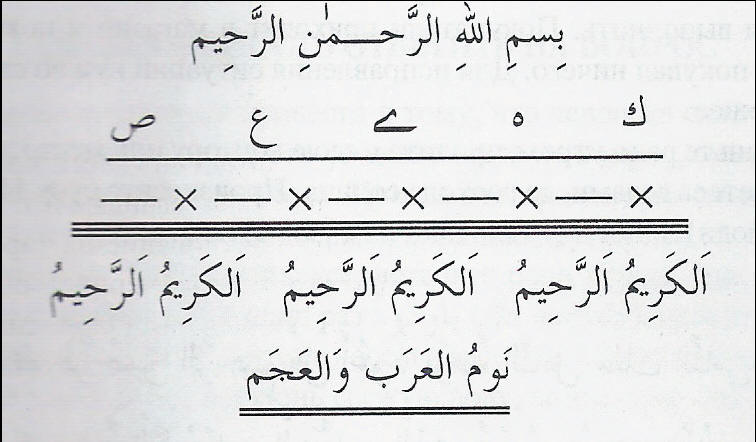 بِسْمِ اللهِ الرَّحْمٰنِ الرَّحِيمِ
ك ه ے ع ص
× × × × ×
اَلكَرِيمُ اَلرَّحِيمُ اَلكَرِيمُ اَلرَّحِيمُ اَلكَرِيمُ اَلرَّحِيمُ
نَومُ العَرَب وَالعَجَم